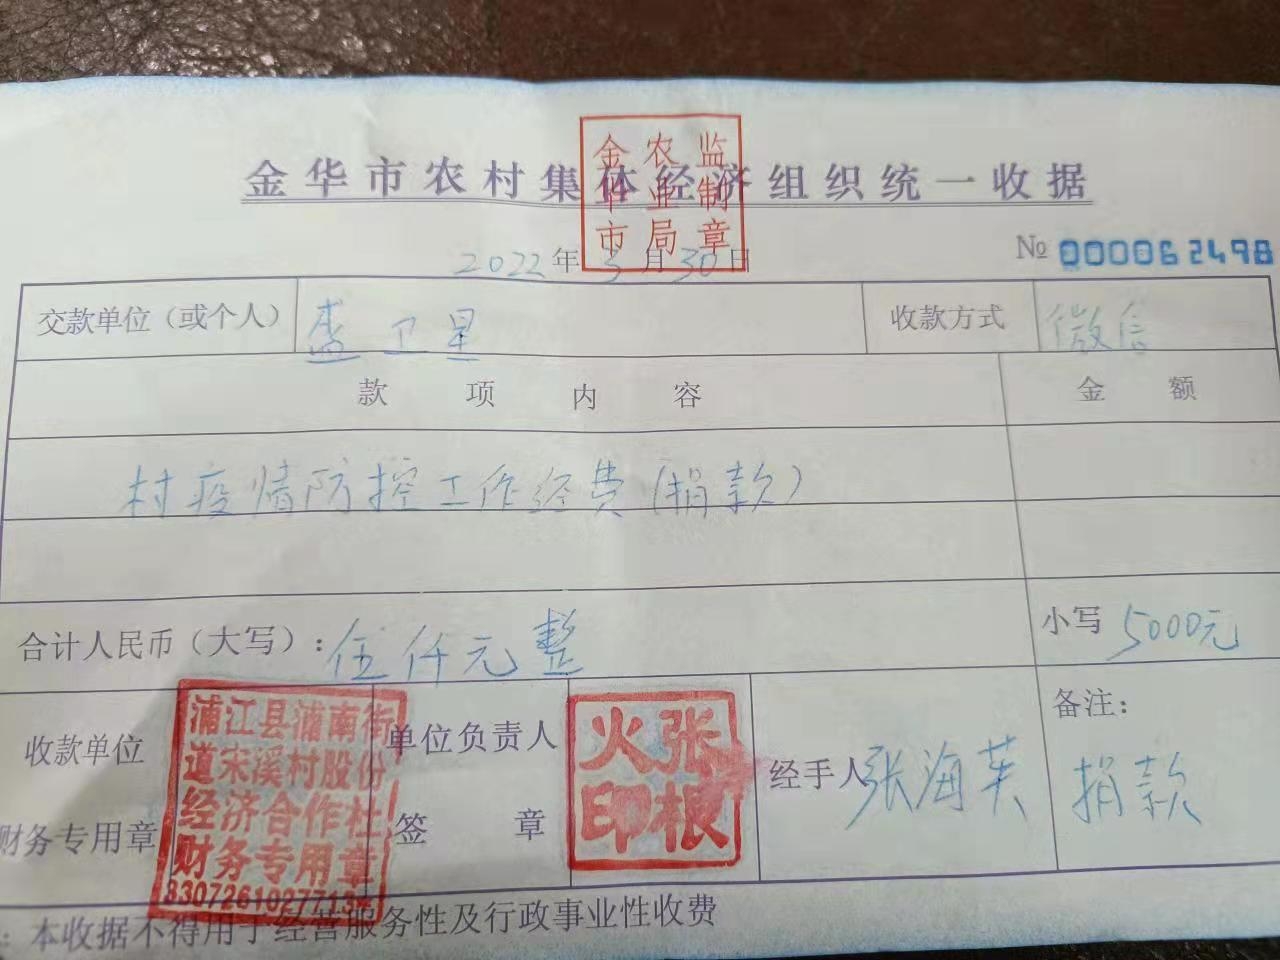 金华市农村集体经济组织统一收据
金华市农业局监制章
2022年3月30日
№ 000062498
交款单位（或个人） 盛卫星 收款方式 微信
款项内容 金额
村疫情防控工作经费(捐款)
合计人民币（大写）：伍仟元整 小写 5000元
收款单位
财务专用章
浦江县浦南街
道宋溪村股份
经济合作社
财务专用章
单位负责人
签章
张根火印
经手人 张海英
备注：
捐款
：本收据不得用于经营服务性及行政事业性收费